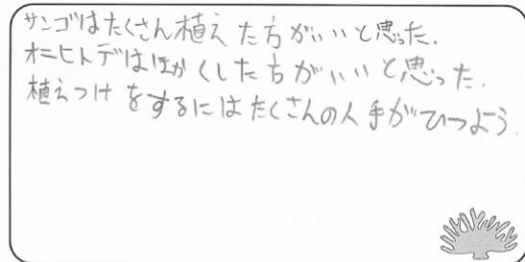 サンゴはたくさん植えた方がいいと思った.
オニヒトデはほかくした方がいいと思った.
植えつけをするにはたくさんの人手がひつよう.